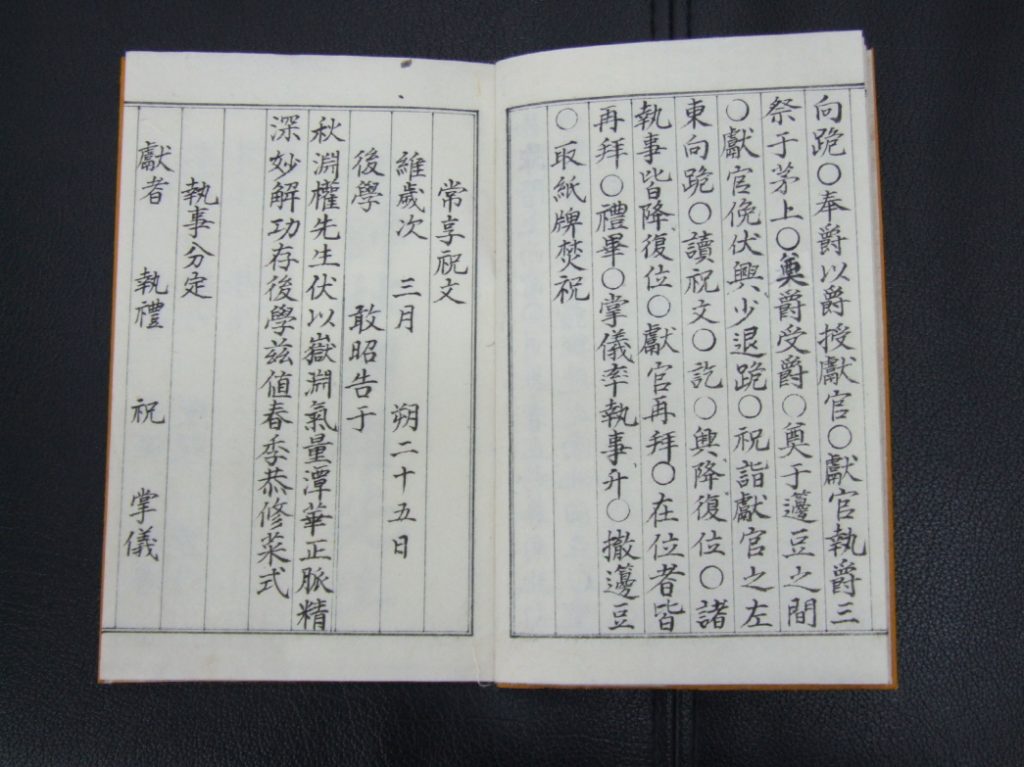 向跪○奉爵以爵授獻官○獻官執爵三
祭于茅上○奠爵受爵○奠于籩豆之間
○獻官俛伏興少退跪○祝詣獻官之左
東向跪○讀祝文○訖○興降復位○諸
執事皆降復位○獻官再拜○在位者皆
再拜○禮畢○掌儀率執事升○撤籩豆
○取紙牌焚祝
常享祝文
維歲次 三月 朔二十五日
後學 敢昭告于
秋淵權先生伏以嶽淵氣量潭華正脈精
深妙解功存後學玆值春季恭修菜式
執事分定
獻者 執禮 祝 掌儀